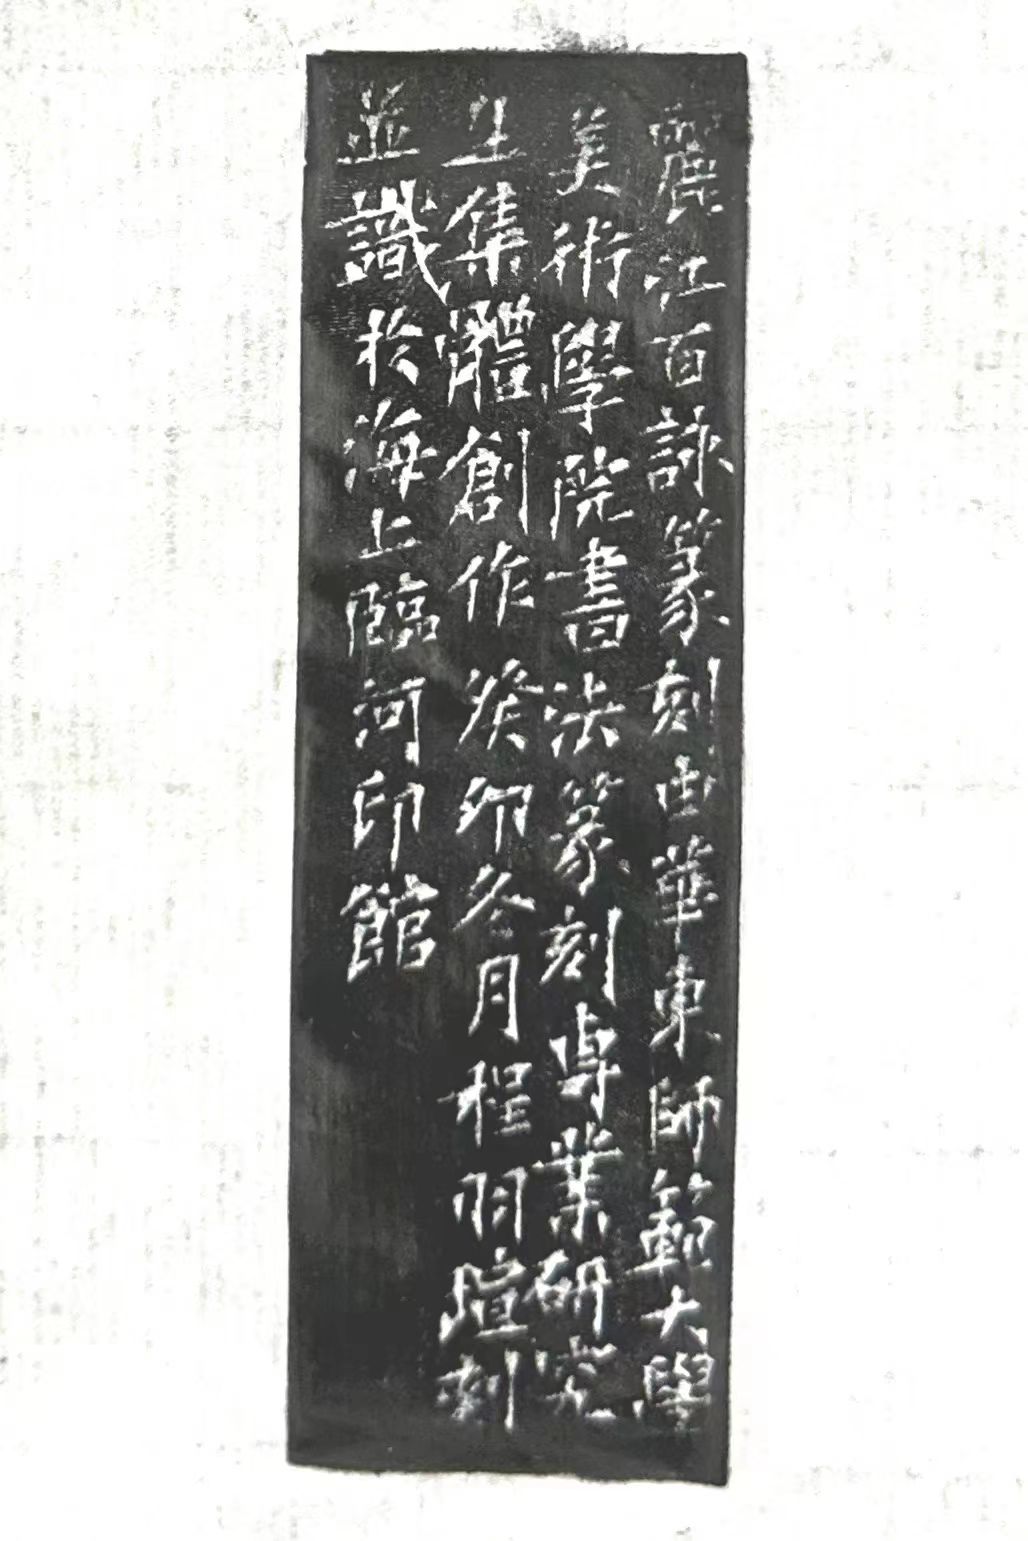 麗江百詠篆刻由華東師範大學
美術學院書法篆刻専業研究
生集體創作癸卯冬月程羽瑄刻
並識於海上臨河印館